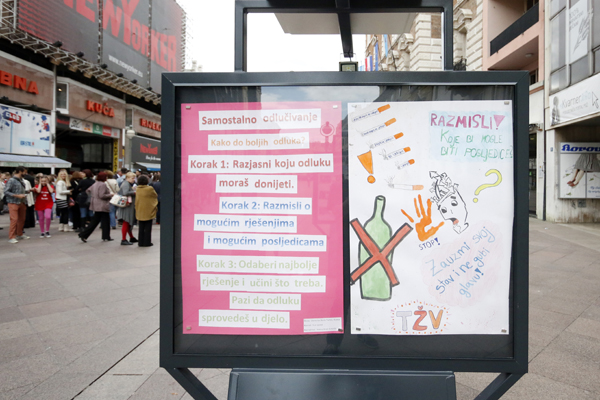 NEW YORKER
BNA
KUĆA
Samostalno odlučivanje
Kako do boljih odluka?
Korak 1: Razjasni koju odluku
moraš donijeti.
Korak 2: Razmisli o
mogućim rješenjima
i mogućim posljedicama
Korak 3: Odaberi najbolje
rješenje i učini što treba.
Pazi da odluku
sprovedeš u djelo.
RAZMISLI!
KOJE BI MOGLE
BITI POSLJEDICE
?
STOP!
Zauzmi svoj
stav i ne gubi
glavu!
TŽV